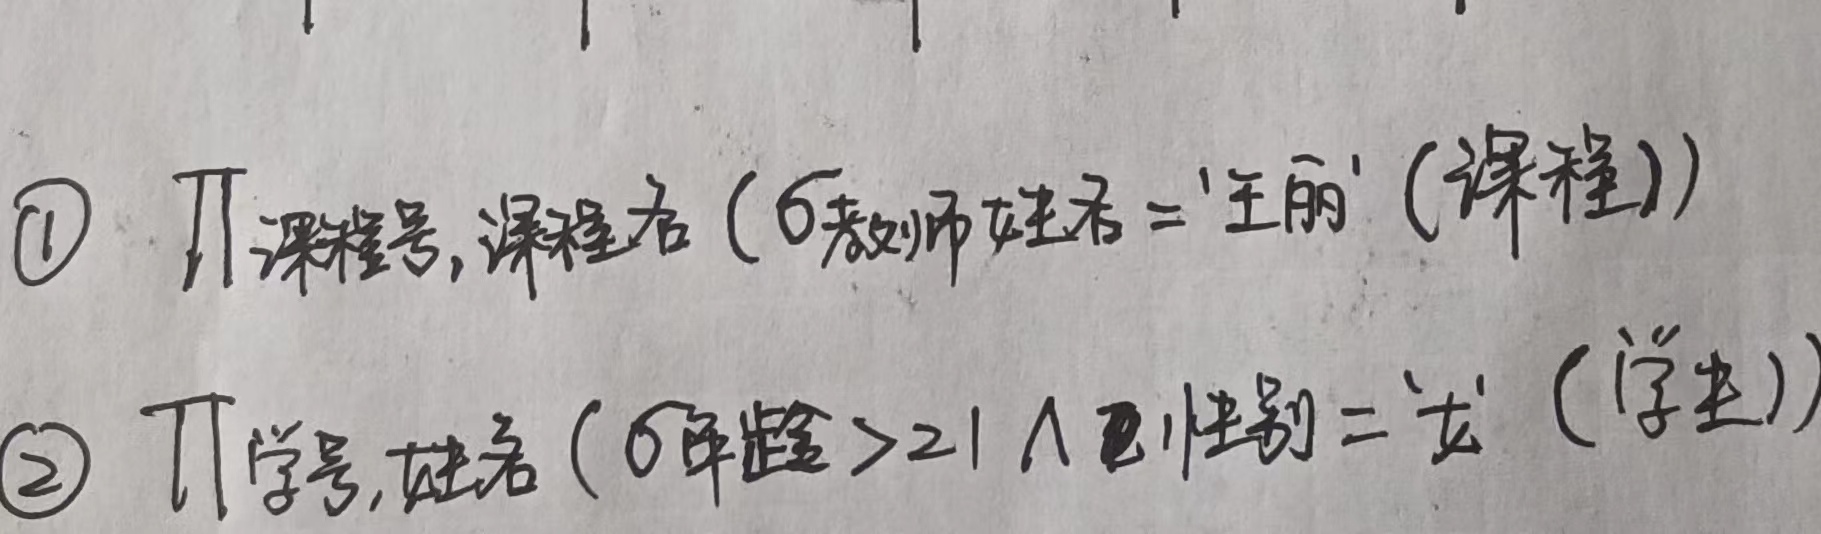 ① Π课程号,课程名(σ教师姓名='王丽'(课程))
② Π学号,姓名(σ年龄>21∧性别='女'(学生))